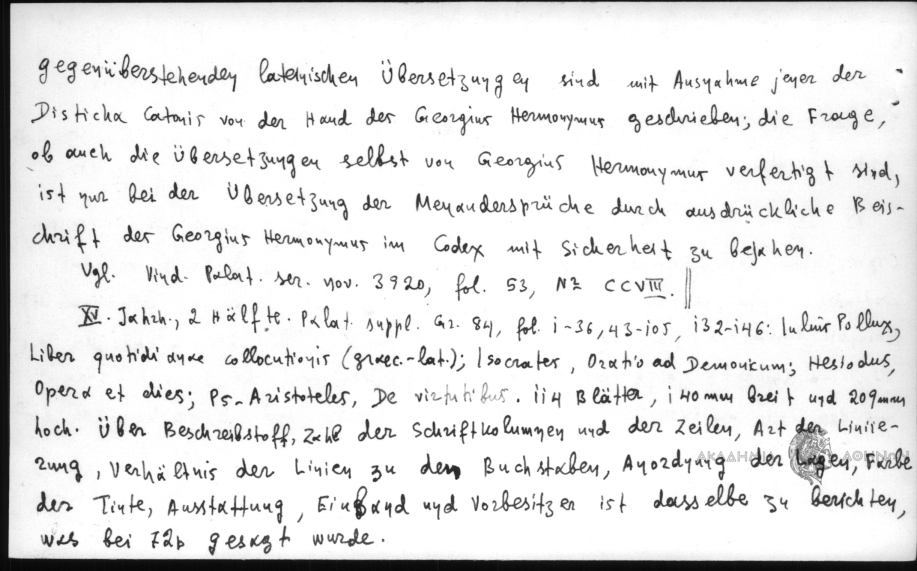 gegenüberstehenden lateinischen Übersetzungen sind mit Ausnahme jener der
Disticha Catonis von der Hand des Georgius Hermonymus geschrieben; die Frage,
ob auch die Übersetzungen selbst von Georgius Hermonymus verfertigt sind,
ist nur bei der Übersetzung der Menandersprüche durch ausdrückliche Beis-
chrift des Georgius Hermonymus im Codex mit Sicherheit zu bejahen.
Vgl. Vind. Palat. ser. nov. 3920, fol. 53, N≗ CCVIII.
XV. Jahrh., 2 Hälfte. Palat. suppl. Gr. 84, fol. 1-36, 43-105, 132-146: Iulius Pollux,
Liber quotidianae collocutionis (graec.-lat.); Isocrates, Oratio ad Demonicum; Hesiodus,
Opera et dies; Ps-Aristoteles, De virtutibus. 114 Blätter, 140mm breit und 209mm
hoch. Über Beschreibstoff, Zahl der Schriftkolumnen und der Zeilen, Art der Liniie-
rung, Verhältnis der Linien zu den Buchstaben, Anordnung der Lagen, Farbe
der Tinte, Ausstattung, Einband und Vorbesitzer ist dasselbe zu berichten,
was bei 72b gesagt wurde.
ΑΚΑΔΗΜΙΑ ΑΘΗΝΩΝ